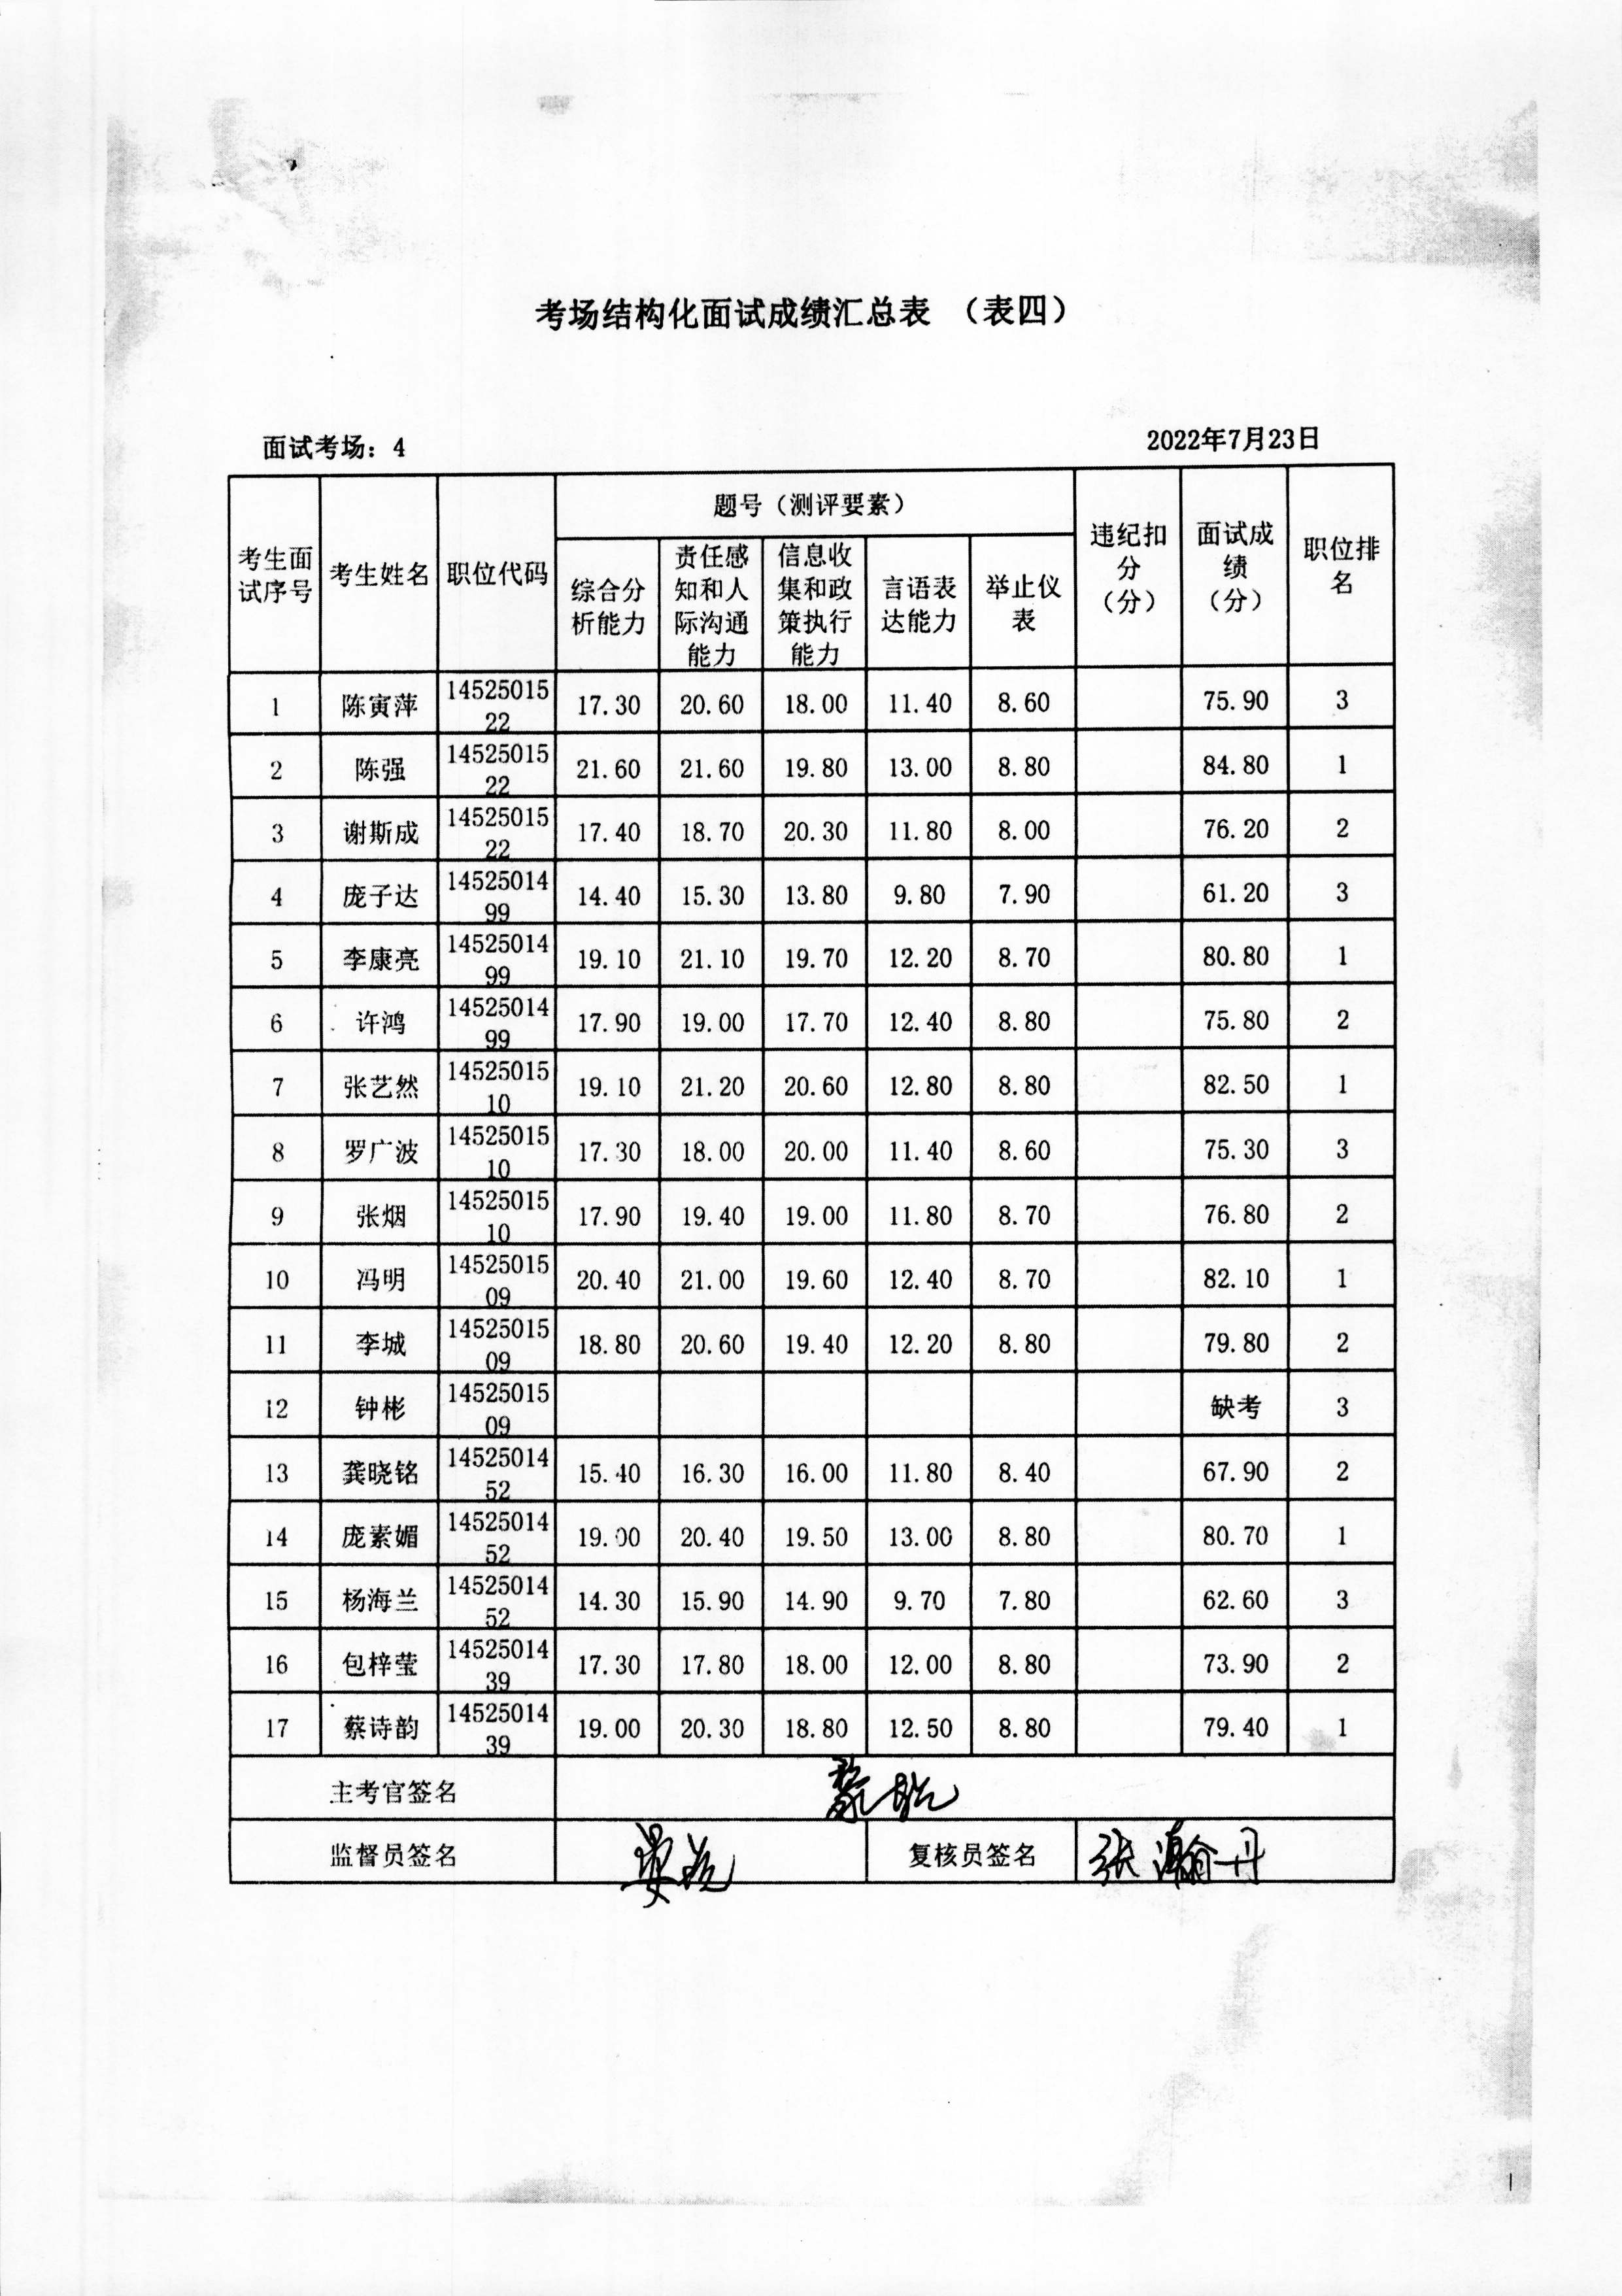 考场结构化面试成绩汇总表 （表四）
面试考场：4 2022年7月23日
考生面试序号 考生姓名 职位代码 题号（测评要素） 违纪扣分（分） 面试成绩（分） 职位排名
综合分析能力 责任感知和人际沟通能力 信息收集和政策执行能力 言语表达能力 举止仪表
1 陈寅萍 1452501522 17.30 20.60 18.00 11.40 8.60 75.90 3
2 陈强 1452501522 21.60 21.60 19.80 13.00 8.80 84.80 1
3 谢斯成 1452501522 17.40 18.70 20.30 11.80 8.00 76.20 2
4 庞子达 1452501499 14.40 15.30 13.80 9.80 7.90 61.20 3
5 李康亮 1452501499 19.10 21.10 19.70 12.20 8.70 80.80 1
6 许鸿 1452501499 17.90 19.00 17.70 12.40 8.80 75.80 2
7 张艺然 1452501510 19.10 21.20 20.60 12.80 8.80 82.50 1
8 罗广波 1452501510 17.30 18.00 20.00 11.40 8.60 75.30 3
9 张烟 1452501510 17.90 19.40 19.00 11.80 8.70 76.80 2
10 冯明 1452501509 20.40 21.00 19.60 12.40 8.70 82.10 1
11 李城 1452501509 18.80 20.60 19.40 12.20 8.80 79.80 2
12 钟彬 1452501509 缺考 3
13 龚晓铭 1452501452 15.40 16.30 16.00 11.80 8.40 67.90 2
14 庞素媚 1452501452 19.00 20.40 19.50 13.00 8.80 80.70 1
15 杨海兰 1452501452 14.30 15.90 14.90 9.70 7.80 62.60 3
16 包梓莹 1452501439 17.30 17.80 18.00 12.00 8.80 73.90 2
17 蔡诗韵 1452501439 19.00 20.30 18.80 12.50 8.80 79.40 1
主考官签名
监督员签名 复核员签名 张瀚丹